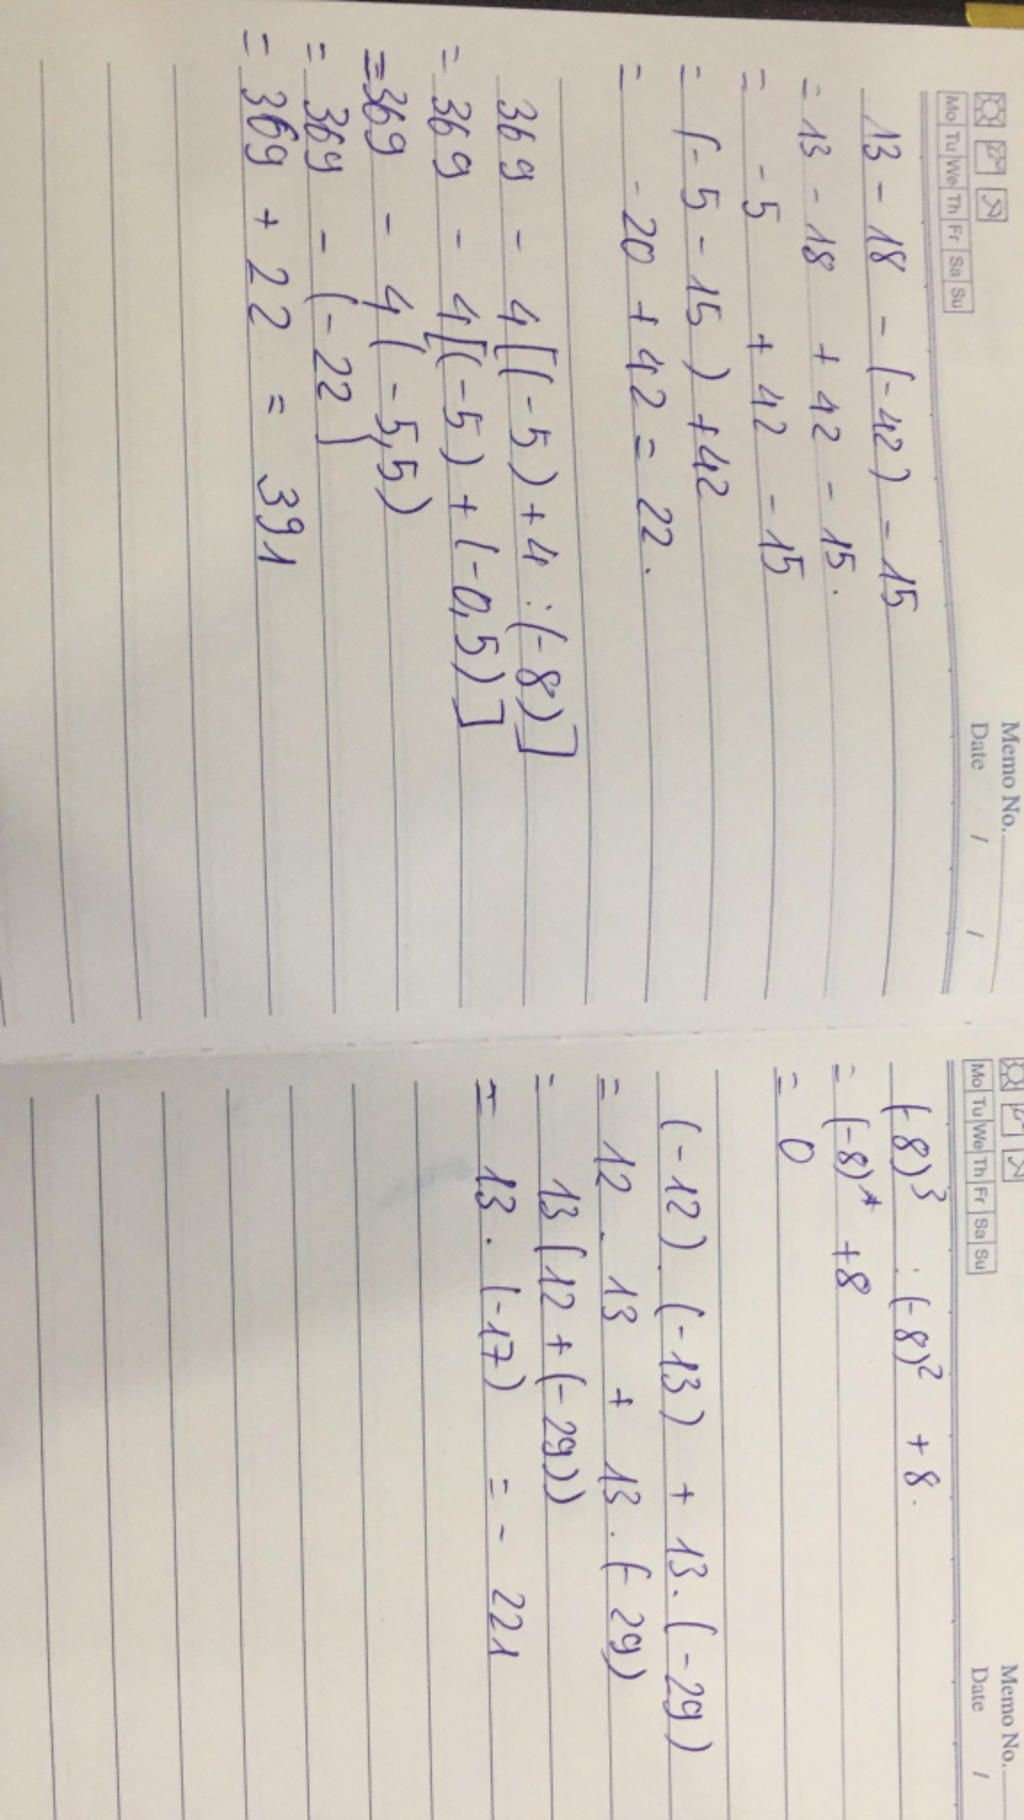 Memo No.
Mo Tu We Th Fr Sa Su
Date / /
13 - 18 - (-42) - 15
= 13 - 18 + 42 - 15.
= -5 + 42 - 15
= (-5 - 15) + 42
= -20 + 42 = 22.
369 - 4[(-5) + 4 : (-8)]
= 369 - 4[(-5) + (-0,5)]
= 369 - 4(-5,5)
= 369 - (-22)
= 369 + 22 = 391
Memo No.
Mo Tu We Th Fr Sa Su
Date /
(-8)³ : (-8)² + 8.
= (-8)¹ + 8
= 0
(-12).(-13) + 13.(-29)
= 12 . 13 + 13.(-29)
= 13(12 + (-29))
= 13.(-17) = -221